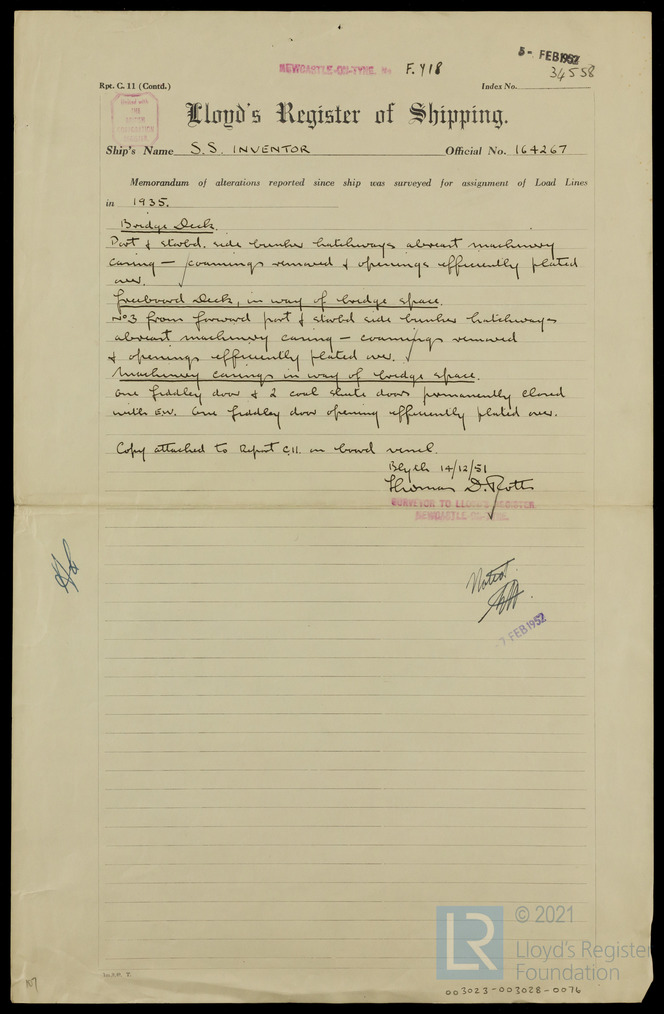 5 - FEB 1952
NEWCASTLE-ON-TYNE. No F. 418
34558
Rpt. C. 11 (Contd.)
Index No.
Lloyd's Register of Shipping.
Ship's Name S.S. INVENTOR Official No. 164267
Memorandum of alterations reported since ship was surveyed for assignment of Load Lines
in 1935.
Bridge Deck.
Port & starbd. side bunker hatchways abreast machinery
casing — coamings removed & openings efficiently plated
over.
Freeboard Deck, in way of bridge space.
No 3 from forward port & starbd side bunker hatchways
abreast machinery casing — coamings removed
& openings efficiently plated over.
Machinery casings in way of bridge space.
One fiddley door & 2 coal shute doors permanently closed
with EW. One fiddley door opening efficiently plated over.
Copy attached to Report C.11. on board vessel.
Blyth 14/12/51
Thomas D.
SURVEYOR TO LLOYD'S REGISTER
NEWCASTLE-ON-TYNE.
Noted.
7 FEB 1952
© 2021
LR
Lloyd's Register
Foundation
003023-003028-0076